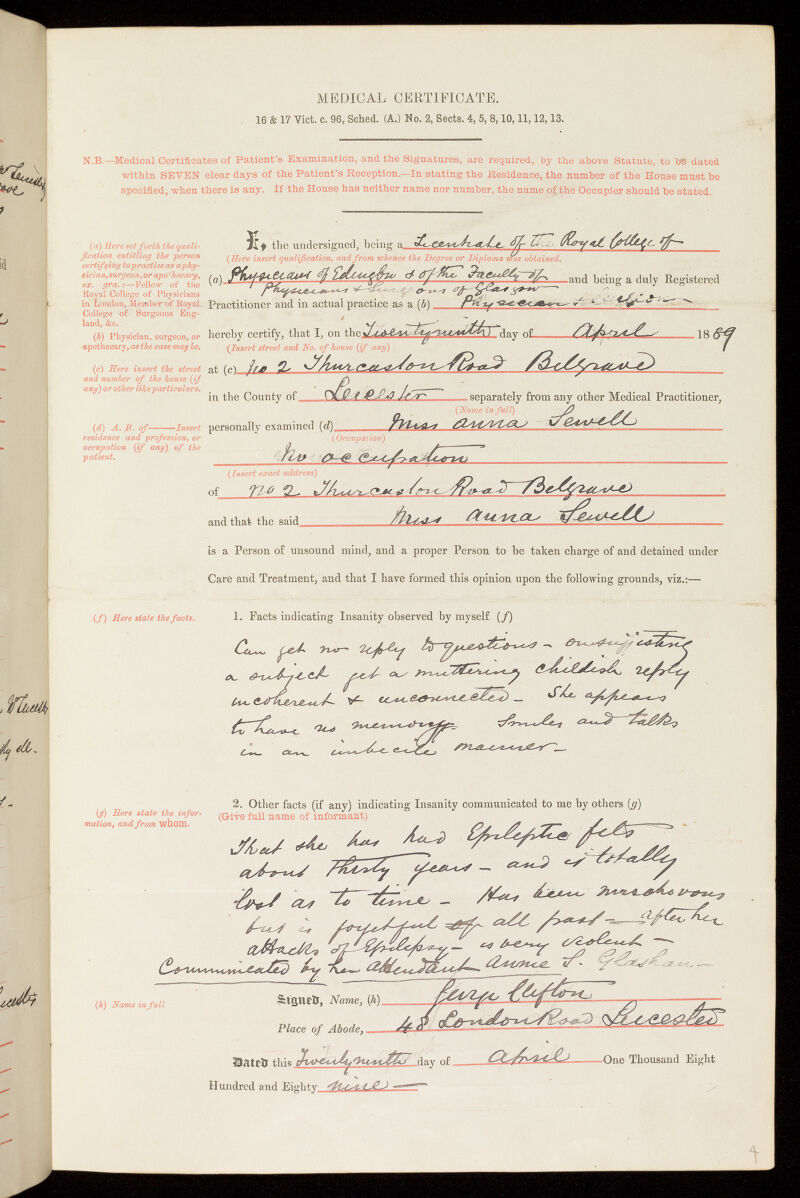 MEDICAL CERTIFICATE.
16 & 17 Vict. c. 96, Sched. (A.) No. 2, Sects. 4, 5, 8, 10, 11, 12, 13.
N.B.—Medical Certificates of Patient's Examination, and the Signatures, are required, by the above Statute, to be dated
within SEVEN clear days of the Patient's Reception.—In stating the Residence, the number of the House must be
specified, when there is any. If the House has neither name nor number, the name of the Occupier should be stated.
(a) Here set forth the quali-
fication entitling the person
certifying to practise as a phy-
sician, surgeon, or apothecary,
ex. gra.:—Fellow of the
Royal College of Physicians
in London, Member of Royal
College of Surgeons Eng-
land, &c.
(b) Physician, surgeon, or
apothecary, as the case may be.
(c) Here insert the street
and number of the house (if
any) or other like particulars.
(d) A. B. of——Insert
residence and profession, or
occupation (if any) of the
patient.
I, the undersigned, being a Licentiate of the Royal College of
(Here insert qualification, and from whence the Degree or Diploma was obtained.
(a) Physicians of Edingbro & of the Faculty of and being a duly Registered
Physicians & Surgeons of Glasgow
Practitioner and in actual practice as a (b) Physician & Surgeon
hereby certify, that I, on the Twentyninth day of April 1889
(Insert street and No. of house (if any)
at (c) No 2 Thurcaston Road Belgrave
in the County of Leicester separately from any other Medical Practitioner,
(Name in full)
personally examined (d) Miss Anna Sewell
(Occupation)
No occupation
(Insert exact address)
of No 2 Thurcaston Road Belgrave
and that the said Miss Anna Sewell
is a Person of unsound mind, and a proper Person to be taken charge of and detained under
Care and Treatment, and that I have formed this opinion upon the following grounds, viz.:—
(f) Here state the facts.
1. Facts indicating Insanity observed by myself (f)
Can get no reply to questions - on suggisting
a subject get a muttering childish reply
incoherent & unconnected - She appears
to have no memory. Smiles and talks
in an imbecile manner -
(g) Here state the infor-
mation, and from whom.
2. Other facts (if any) indicating Insanity communicated to me by others (g)
(Give full name of informant)
That she has had Epileptic fits
about Thirty years - and is totally
lost as to time - Has been mischovous
but is forgetful of all past - After her
attacks of Epilepsy - is very violent -
Communicated by her attendant Annie S. Glashan -
(h) Name in full
Signed, Name, (h) George Clifton
Place of Abode, 48 London Road Leicester
Dated this Twentyninth day of April One Thousand Eight
Hundred and Eighty nine —
4